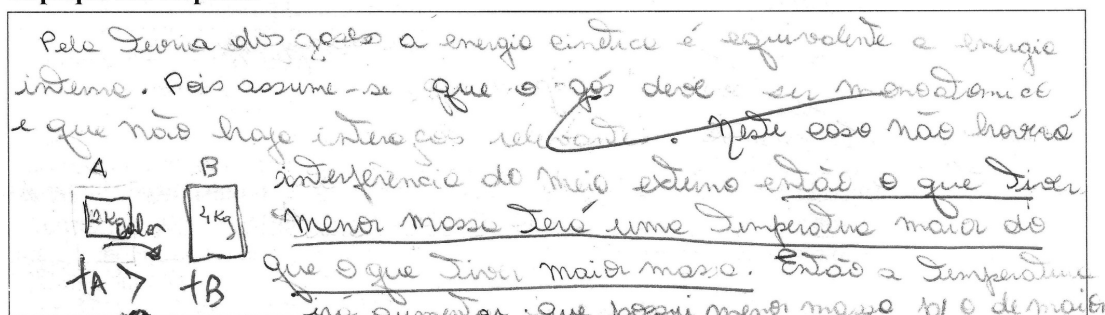 Pela Teoria dos gases a energia cinética é equivalente a energia
interna. Pois assume-se que o gás deve ser monoatomico
e que não haja interações relevantes. Neste caso não haverá
A B interferência do meio externo então o que tiver
2Kg calor 4Kg menor massa terá uma temperatura maior do
tA > tB que o que tiver maior massa. Então a temperatura
irá aumentar que possui menor massa p/ o de maior